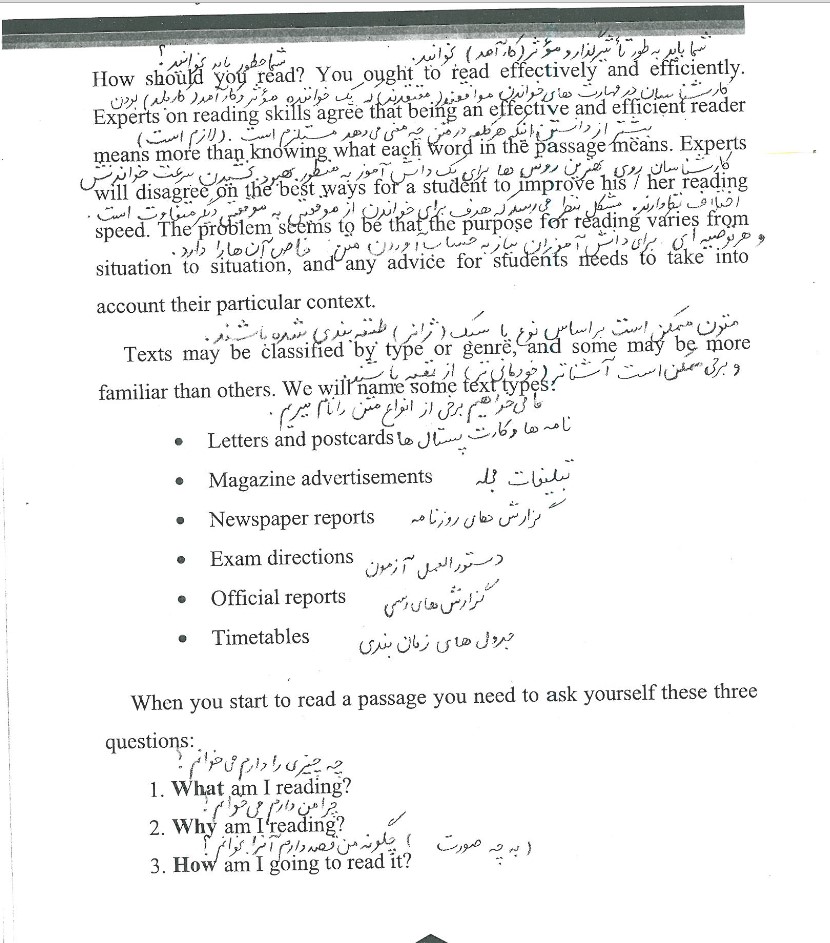 شما چطور باید بخوانید؟ شما باید به طور تأثیرگذار و مؤثر (کارآمد) بخوانید.
How should you read? You ought to read effectively and efficiently.
کارشناسان در مهارت های خواندن موافقند (معتقدند) که یک خواننده مؤثر و کارآمد (کاربلد) بودن
Experts on reading skills agree that being an effective and efficient reader
بیشتر از دانستن اینکه هر کلمه در متن چه معنی می دهد مستلزم است. (لازم است)
means more than knowing what each word in the passage means. Experts
کارشناسان روی بهترین روش ها برای یک دانش آموز به منظور بهبود سرعت خواندنش
will disagree on the best ways for a student to improve his / her reading
اختلاف نظر دارند. مشکل بنظر می رسد که هدف برای خواندن از موقعیتی به موقعیتی دیگر متفاوت است.
speed. The problem seems to be that the purpose for reading varies from
و هر توصیه ای برای دانش آموزان نیاز به حساب آوردن متن خاص آن ها را دارد.
situation to situation, and any advice for students needs to take into
account their particular context.
متون ممکن است بر اساس نوع یا سبک (ژانر) طبقه بندی شده باشند.
Texts may be classified by type or genre, and some may be more
و برخی ممکن است آشناتر (خودمانی تر) از بقیه باشند.
familiar than others. We will name some text types:
ما می خواهیم برخی از انواع متن را نام ببریم.
• Letters and postcards نامه ها و کارت پستال ها
• Magazine advertisements تبلیغات مجله
• Newspaper reports گزارش های روزنامه
• Exam directions دستورالعمل آزمون
• Official reports گزارش های رسمی
• Timetables جدول های زمان بندی
When you start to read a passage you need to ask yourself these three
questions:
چه چیزی را دارم می خوانم؟
1. What am I reading?
چرا من دارم می خوانم؟
2. Why am I reading?
(به چه صورت) چگونه من قصد دارم آنرا بخوانم؟
3. How am I going to read it?